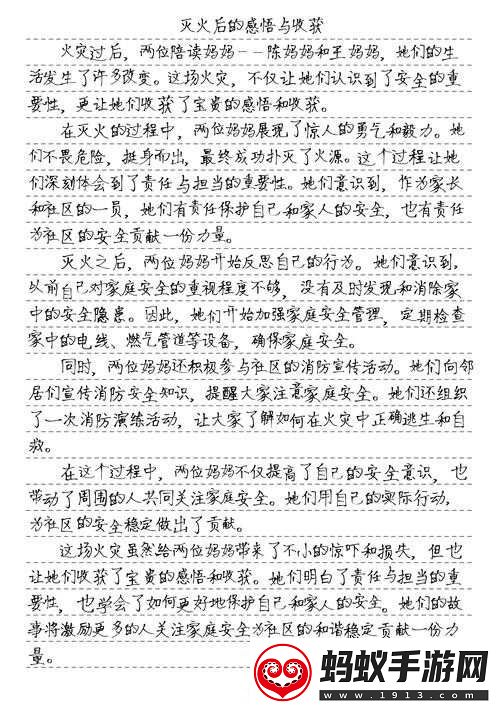 灭火后的感悟与收获
火灾过后，两位陪读妈妈--陈妈妈和王妈妈，她们的生
活发生了许多改变。这场火灾，不仅让她们认识到了安全的重
要性，更让她们收获了宝贵的感悟和收获。
在灭火的过程中，两位妈妈展现了惊人的勇气和毅力。她
们不畏危险，挺身而出，最终成功扑灭了火源。这个过程让她
们深刻体会到了责任与担当的重要性。她们意识到，作为家长
和社区的一员，她们有责任保护自己和家人的安全，也有责任
为社区的安全贡献一份力量。
灭火之后，两位妈妈开始反思自己的行为。她们意识到，
以前自己对家庭安全的重视程度不够，没有及时发现和消除家
中的安全隐患。因此，她们开始加强家庭安全管理，定期检查
家中的电线、燃气管道等设备，确保家庭安全。
同时，两位妈妈还积极参与社区的消防宣传活动。她们向邻
居们宣传消防安全知识，提醒大家注意家庭安全。她们还组织
了一次消防演练活动，让大家了解如何在火灾中正确逃生和自
救。
在这个过程中，两位妈妈不仅提高了自己的安全意识，也
带动了周围的人共同关注家庭安全。她们用自己的实际行动，
为社区的安全稳定做出了贡献。
这场火灾虽然给两位妈妈带来了不小的惊吓和损失，但也
让她们收获了宝贵的感悟和收获。她们明白了责任与担当的重
要性，也学会了如何更好地保护自己和家人的安全。她们的故
事将激励更多的人关注家庭安全为社区的和谐稳定贡献一份力
量。
蚂蚁手游网
www.1913.com